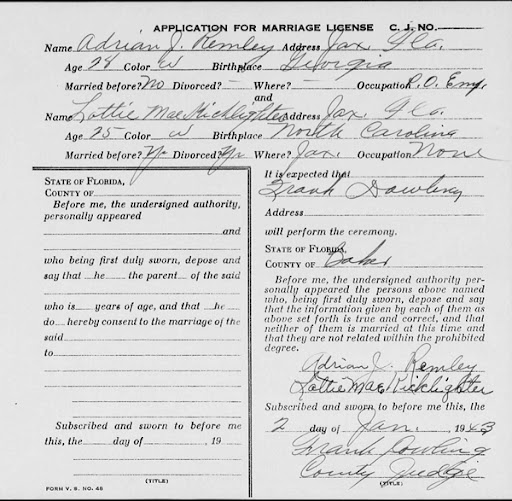 APPLICATION FOR MARRIAGE LICENSE C. J. NO.
Name Adrian J. Remley Address Jax. Fla.
Age 28 Color W Birthplace Georgia
Married before? No Divorced? - Where? - Occupation P.O. Emp.
and
Name Lottie Mae Kicklighter Address Jax. Fla.
Age 25 Color W Birthplace North Carolina
Married before? Yr Divorced? Yr Where? Jax. Occupation None
STATE OF FLORIDA,
COUNTY OF
Before me, the undersigned authority,
personally appeared
and
who being first duly sworn, depose and
say that he the parent of the said
who is years of age, and that he
do hereby consent to the marriage of the
said
to
Subscribed and sworn to before me
this, the day of , 19
FORM V. S. NO. 45
(TITLE)
It is expected that
Frank Dowling
Address
will perform the ceremony.
STATE OF FLORIDA,
COUNTY OF Baker
Before me, the undersigned authority per-
sonally appeared the persons above named
who, being first duly sworn, depose and say
that the information given by each of them as
above set forth is true and correct, and that
neither of them is married at this time and
that they are not related within the prohibited
degree.
Adrian J. Remley
Lottie Mae Kicklighter
Subscribed and sworn to before me this, the
2 day of Jan. , 1943
Frank Dowling
County Judge
(TITLE)